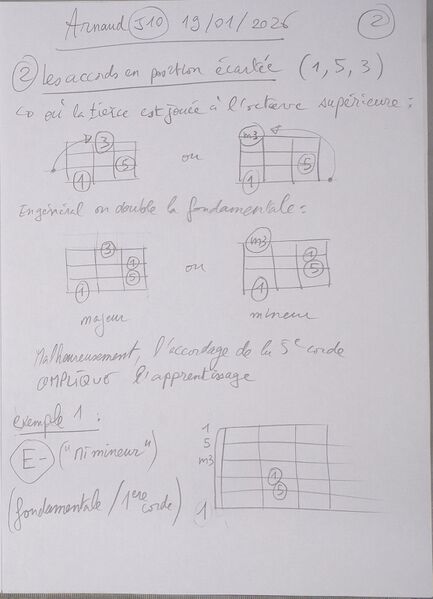 Arnaud J10 19/01/2026 2
2 Les accords en position écartée (1, 5, 3)
où la tierce est jouée à l'octave supérieure :
3 m3
ou
5 5
1 1
En général on double la fondamentale :
3 m3
1 1
ou
5 5
1 1
majeur mineur
Malheureusement, l'accordage de la 5e corde
COMPLIQUE l'apprentissage
exemple 1 :
1
5
E- ("mi mineur") m3
1
5
(fondamentale / 1ere corde) 1